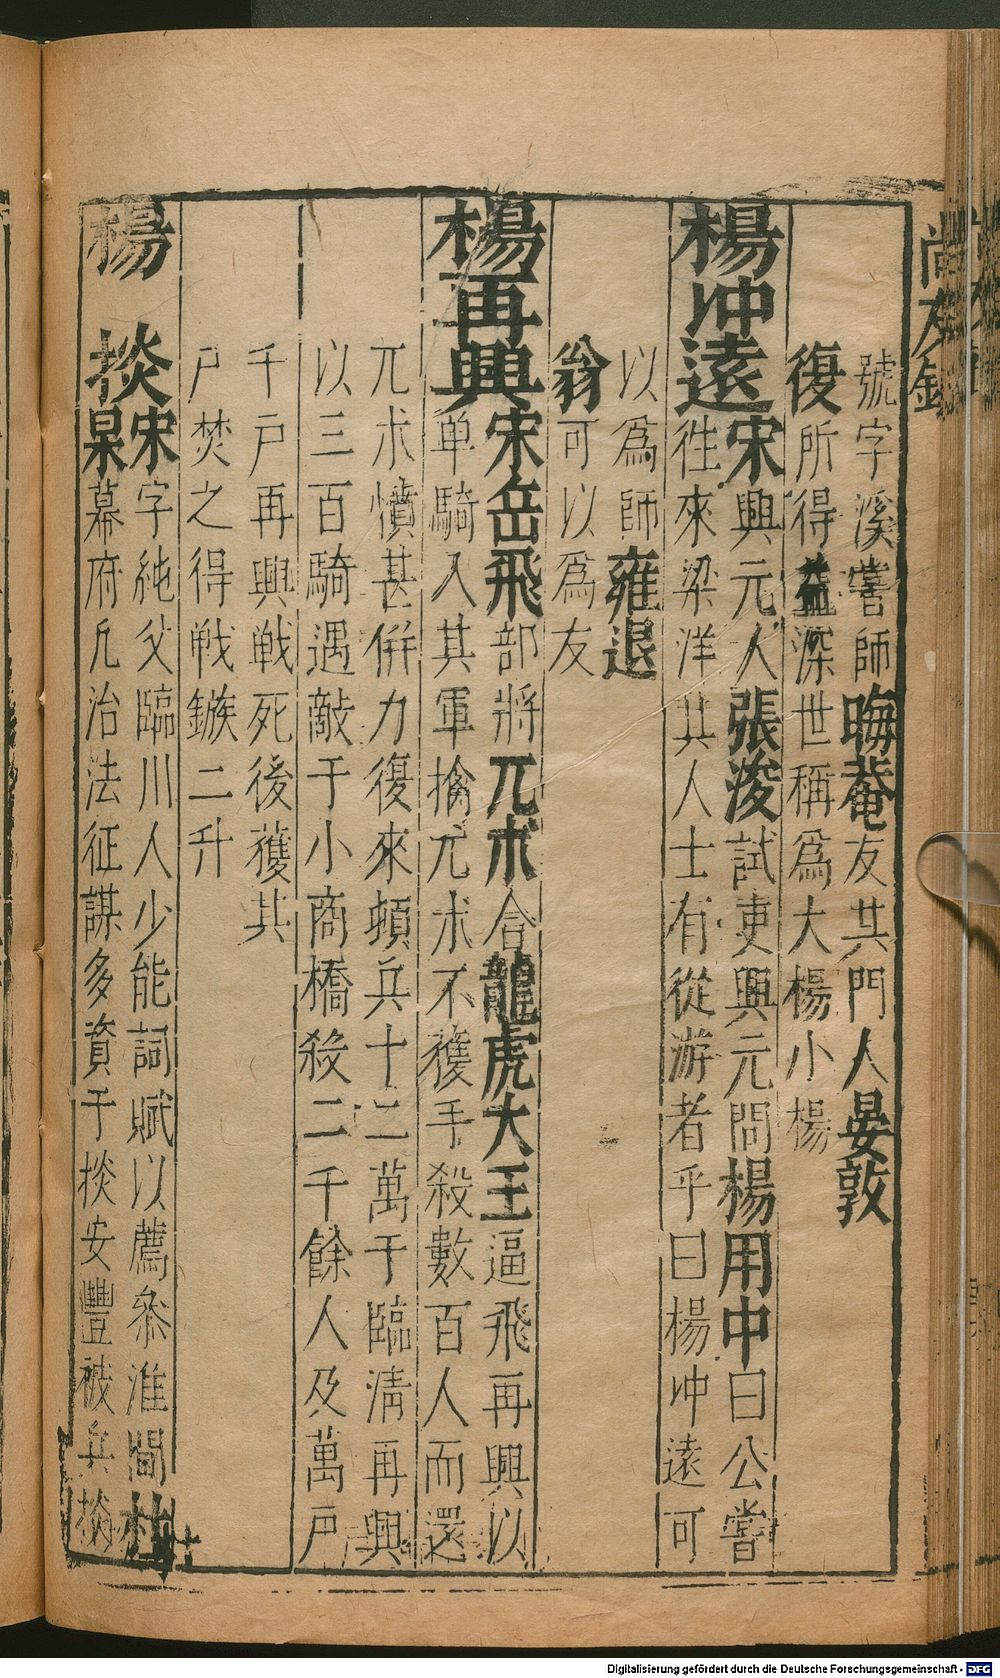 尚友錄
號字溪嘗師晦菴友其門人晏敦
復所得益深世稱爲大楊小楊
楊冲遠宋興元人張浚試吏興元問楊用中曰公嘗
徃來梁洋其人士有從游者乎曰楊冲遠可
以爲師雍退
翁可以爲友
楊再興宋岳飛部將兀朮合龍虎大王逼飛再興以
单騎入其軍擒兀朮不獲手殺數百人而還
兀朮憤甚併力復來頓兵十二萬于臨淸再興
以三百騎遇敵于小商橋殺二千餘人及萬戶
千戶再興戦死後獲其
尸焚之得戦鏃二升
楊掞宋字純父臨川人少能詞賦以薦叅淮閫杜
杲幕府凡治法征謀多資于掞安豐被兵掞
Digitalisierung gefördert durch die Deutsche Forschungsgemeinschaft - DFG